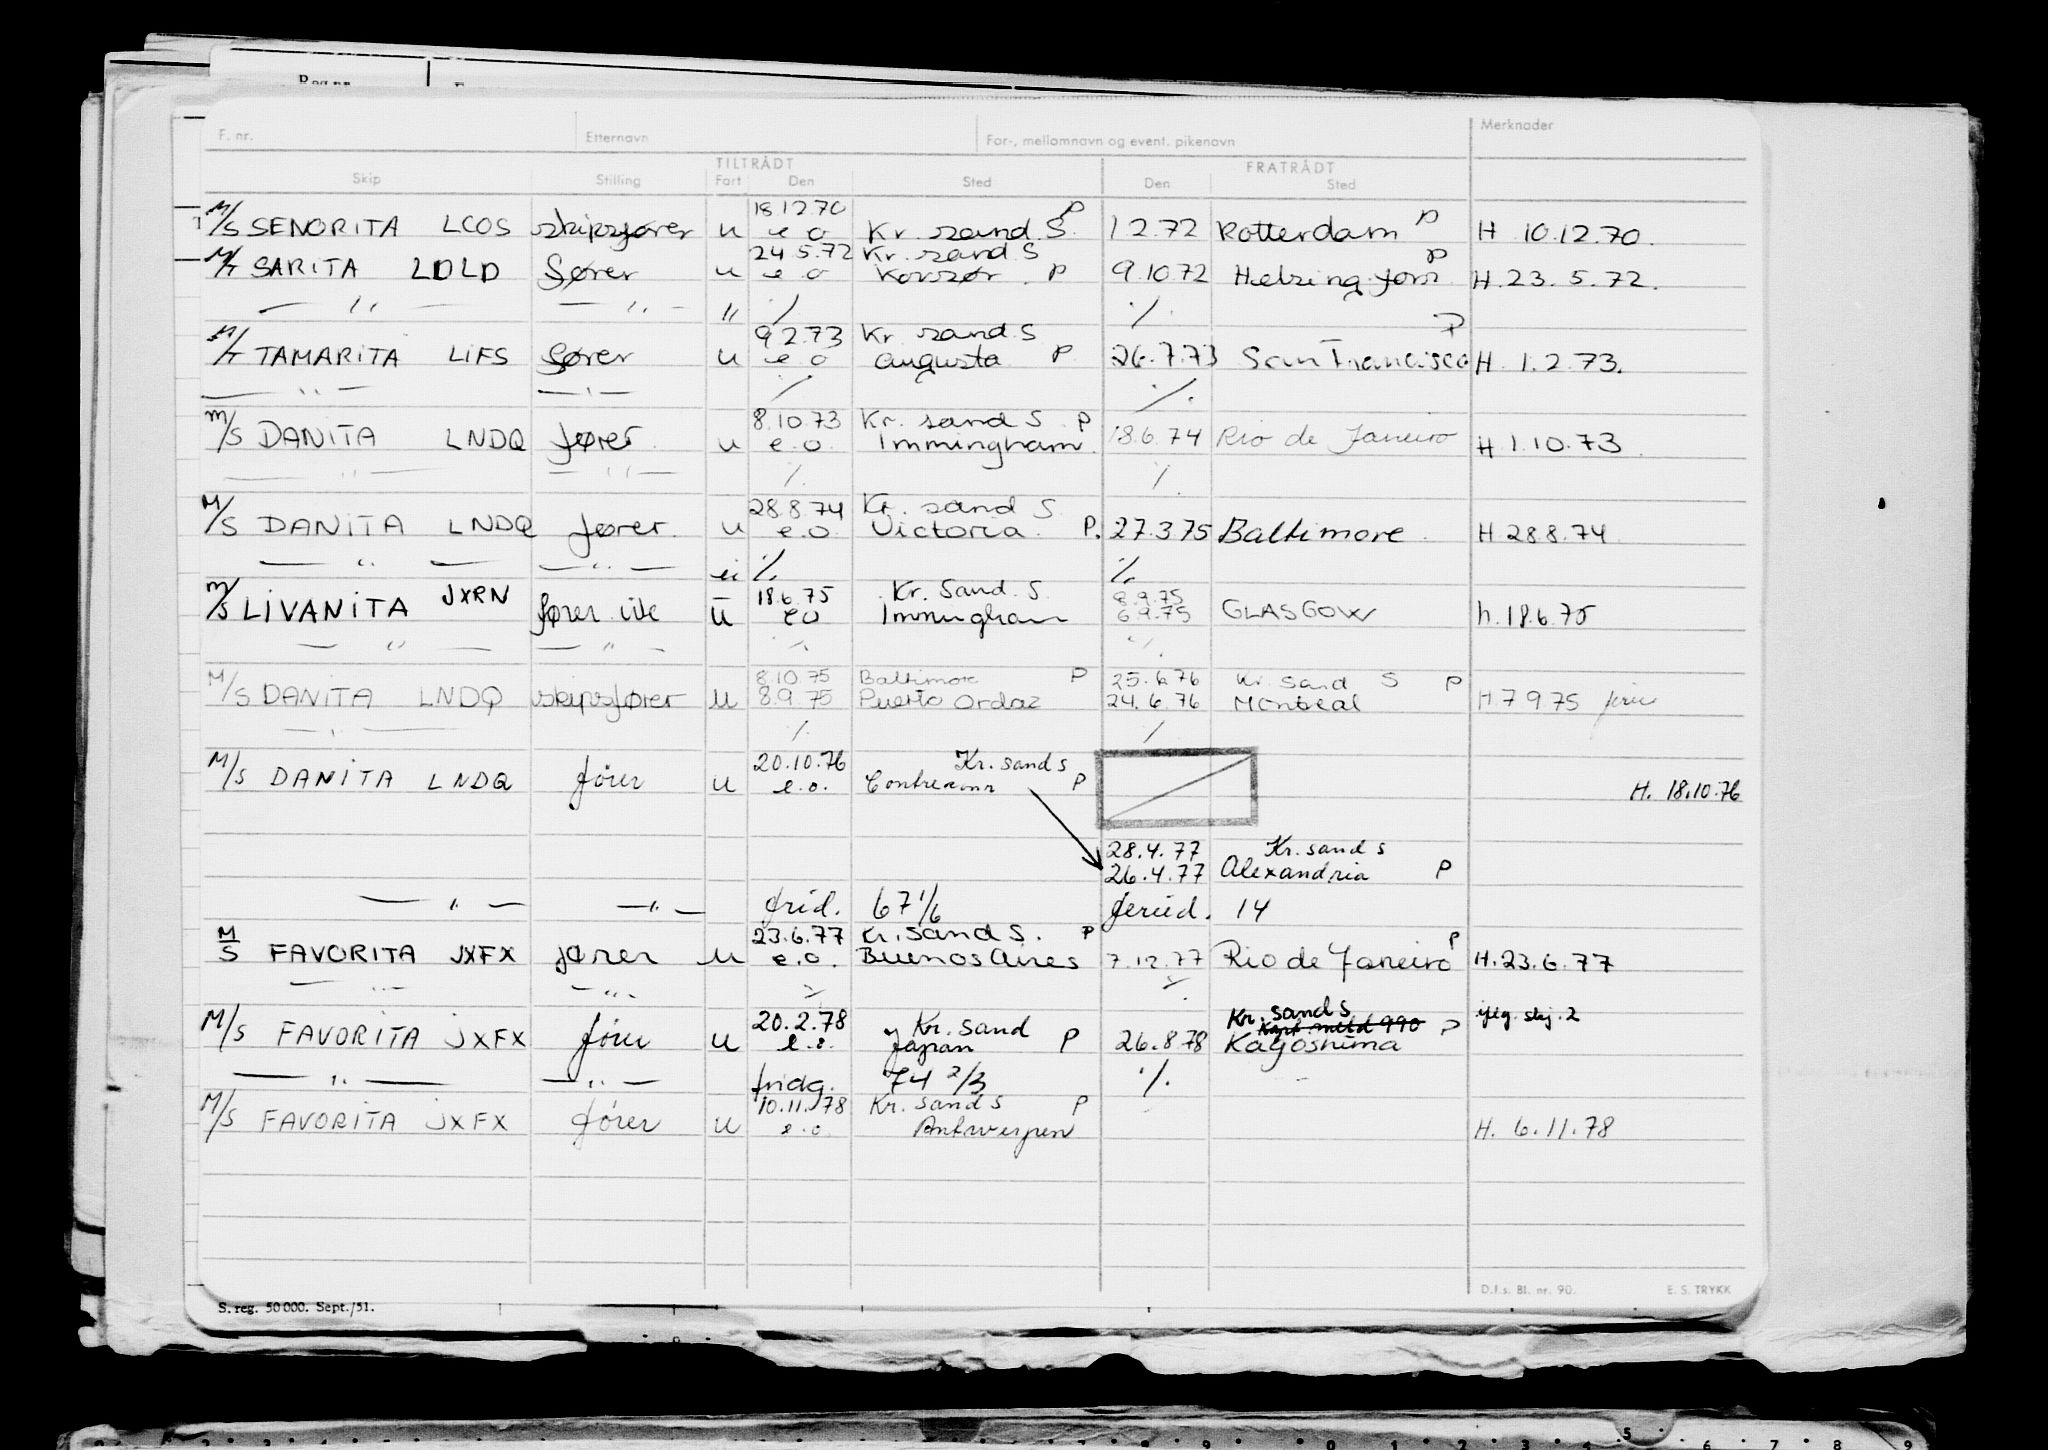 F. nr. Etternavn For-, mellomnavn og event. pikenavn Merknader
TILTRÅDT FRATRÅDT
Skip Stilling Fart Den Sted Den Sted
18.12.70 P
M/S SENORITA LCOS skipsfører u e o Kr. sand. S. 1 2.72 Rotterdam P H 10.12.70.
24.5.72 Kr. sand. S P
M/T SARITA LDLD fører u e o Korsør. P 9.10.72 Helsingfors H. 23. 5. 72.
— " — — " — " % %
9.2.73 Kr. sand. S P
M/T TAMARITA LIFS fører u e o augusta P 26.7.73 San Francisco H. 1.2.73.
— " — — " — % %.
8.10.73 Kr. sand S. P
M/S DANITA LNDQ fører u e.o. Immingham. 18.6.74 Rio de Janeiro H 1.10.73.
— " — — " — % %
28.8.74 Kr. sand S
M/S DANITA LNDQ fører. u e.o. Victoria. P. 27.3.75 Baltimore. H 28.8.74
— " — — " — % %
18.6.75 Kr. Sand. S. 8.9.75
M/S LIVANITA JXRN fører u e o Immingham 6.9.75 GLASGOW h. 18.6.75
— " — — " — % %
8.10.75 Baltimore P 25.6.76 Kr. Sand S P
M/S DANITA LNDQ skipsfører u 8.9.75 Puerto Ordaz 24.6.76 Montreal H 7 9 75
— " — % %
20.10.76 Kr. sand s
M/S DANITA LNDQ fører u e.o. Contrecoeur P H. 18.10.76
28.4.77 Kr. sand s
26.4.77 Alexandria P
— " — — " — frid. 67 1/6 feried. 14
23.6.77 Kr. sand S. P P
M/S FAVORITA JXFX fører u e.o. Buenos Aires 7.12.77 Rio de Janeiro H. 23.6.77
— " — — " — % %
20.2.78 Kr. sand Kr. sand S iflg. skj. 2
M/S FAVORITA JXFX fører u e.o. Japan P 26.8.78 Kagoshima P
— " — — " — fridg. 74 2/3 %
10.11.78 Kr. sand s P
M/S FAVORITA JXFX fører u e.o. Antwerpen H. 6.11.78
D.f.s. Bl. nr. 90. E. S. TRYKK
S. reg. 50 000. Sept./51.